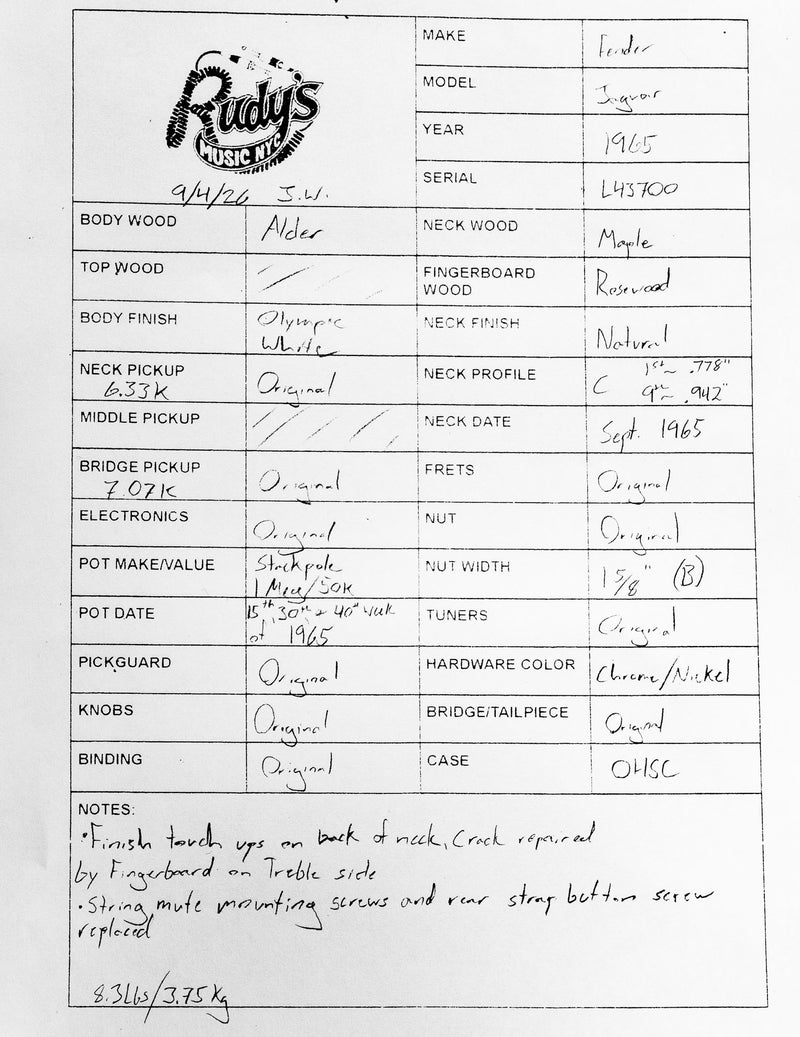 Rudy's
MUSIC NYC
9/4/26 J.W.
MAKE Fender
MODEL Jaguar
YEAR 1965
SERIAL L43700
BODY WOOD Alder
NECK WOOD Maple
TOP WOOD
FINGERBOARD
WOOD
Rosewood
BODY FINISH Olympic
White
NECK FINISH Natural
NECK PICKUP
6.33K
Original
NECK PROFILE C 1st ~ .778"
9th ~ .942"
MIDDLE PICKUP
NECK DATE Sept. 1965
BRIDGE PICKUP
7.07K
Original
FRETS Original
ELECTRONICS Original
NUT Original
POT MAKE/VALUE Stackpole
1 Meg/50K
NUT WIDTH 1 5/8" (B)
POT DATE 15th, 30th & 40th
of 1965
TUNERS Original
PICKGUARD Original
HARDWARE COLOR Chrome/Nickel
KNOBS Original
BRIDGE/TAILPIECE Original
BINDING Original
CASE OHSC
NOTES:
• Finish touch ups on back of neck, Crack repaired
by Fingerboard on Treble side
• String mute mounting screws and rear strap button screw
replaced
8.3Lbs/3.75Kg